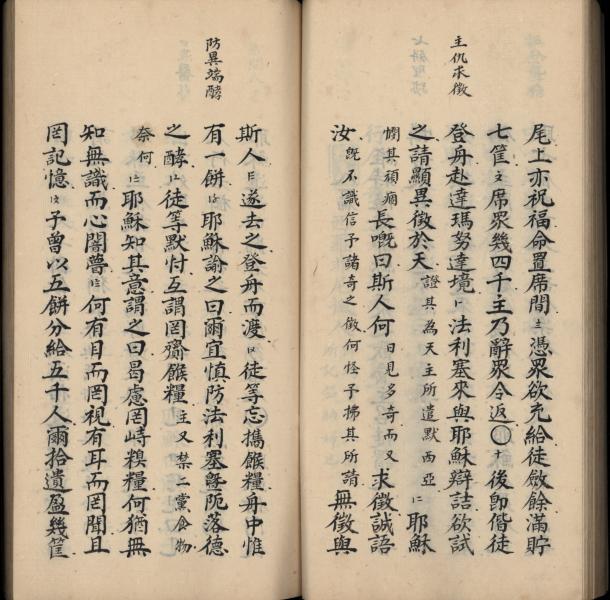 主仇求徵
尾上亦祝福命置席間憑眾欲充給徒斂餘滿貯
七筐〩席眾幾四千主乃辭眾令返〇十後即偕徒
登舟赴達瑪努達境法利塞來與耶穌辯詰欲試
之請顯異徵於天證其為天主所遣默西亞耶穌
憫其頑痼長嘅曰斯人何日見多奇而又求徵誠語
汝既不識信予諸奇之徵何怪予拂其所請無徵與
防異端酵
斯人遂去之登舟而渡徒等忘攜餱糧舟中惟
有一餅耶穌諭之曰爾宜慎防法利塞暨阨落德
之酵徒等默忖互謂罔齎餱糧主又禁二黨食物
奈何耶穌知其意謂之曰曷慮罔峙糗糧何猶無
知無識而心闇瞢何有目而罔視有耳而罔聞且
罔記憶予曾以五餅分給五千人爾拾遺盈幾筐